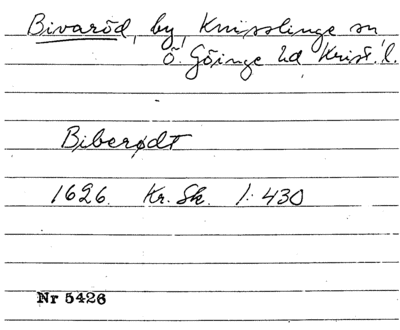 Bivaröd, by, Knisslinge sn
Ö. Göinge hd Krist. l.
Biberødt
1626. Kr. Sk. 1: 430
Nr 5426